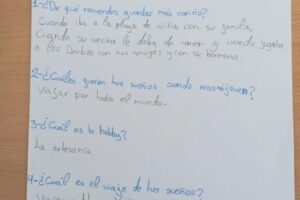 1-¿De qué recuerdos guardas más cariño?
Cuando iba a la playa de niña con su familia,
Cuando su vecina le daba de comer y cuando jugaba
a las Barbies con sus amigas y con su hermana.
2-¿Cuáles eran tus sueños cuando eras más joven?
Viajar por todo el mundo.
3-¿Cuál es tu hobby?
La artesanía
4-¿Cuál es el viaje de tus sueños?